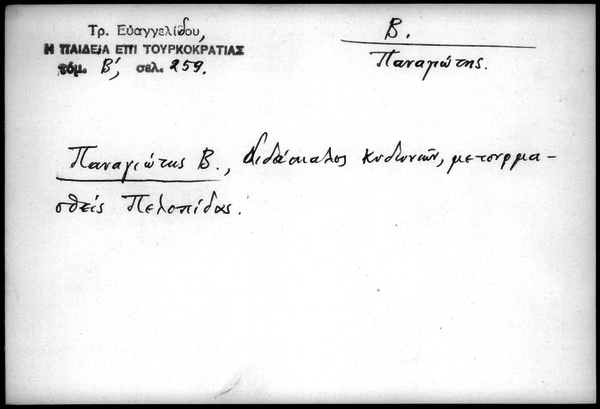 Τρ. Εὐαγγελίδου,
Η ΠΑΙΔΕΙΑ ΕΠΙ ΤΟΥΡΚΟΚΡΑΤΙΑΣ
τόμ. Β΄, σελ. 259.
Β.
Παναγιώτης.
Παναγιώτης Β., διδάσκαλος Κυδωνιῶν, μετονομα-
σθείς Πελοπίδας.